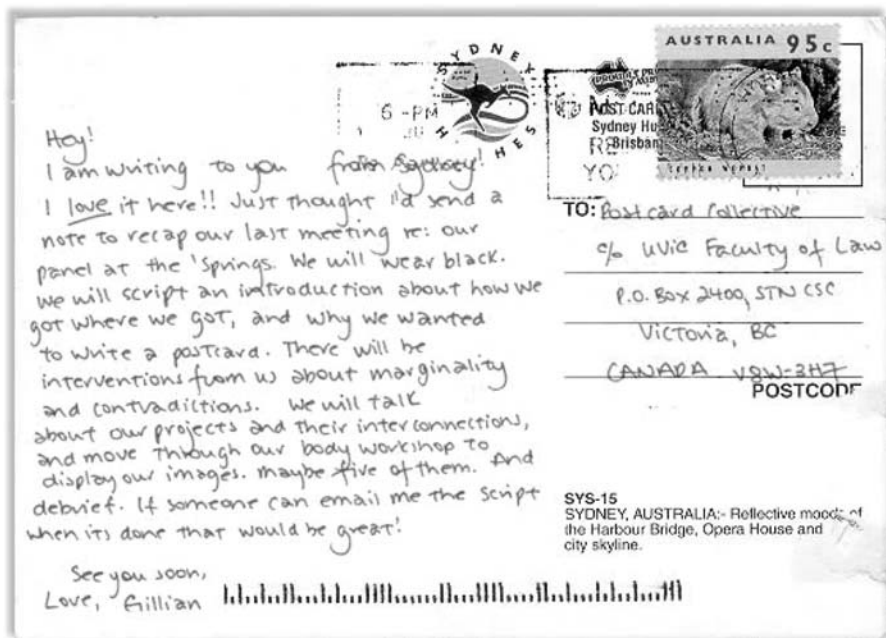 Hey!
I am writing to you from Sydney!
I love it here!! Just thought I'd send a
note to recap our last meeting re: our
panel at the 'Springs. We will wear black.
We will script an introduction about how we
got where we got, and why we wanted
to write a postcard. There will be
interventions from us about marginality
and contradictions. We will talk
about our projects and their interconnections,
and move through our body workshop to
display our images. maybe five of them. And
debrief. If someone can email me the script
when its done that would be great!
See you soon,
Love, Gillian
SYDNEY
6-PM
AUSTRALIA 95c
POST CARD
Sydney
Brisban
YO
TO: Postcard Collective
c/o UVic Faculty of Law
P.O. Box 2400, STN CSC
Victoria, BC
CANADA V8W-3H7
POSTCODE
SYS-15
SYDNEY, AUSTRALIA:- Reflective moods of
the Harbour Bridge, Opera House and
city skyline.